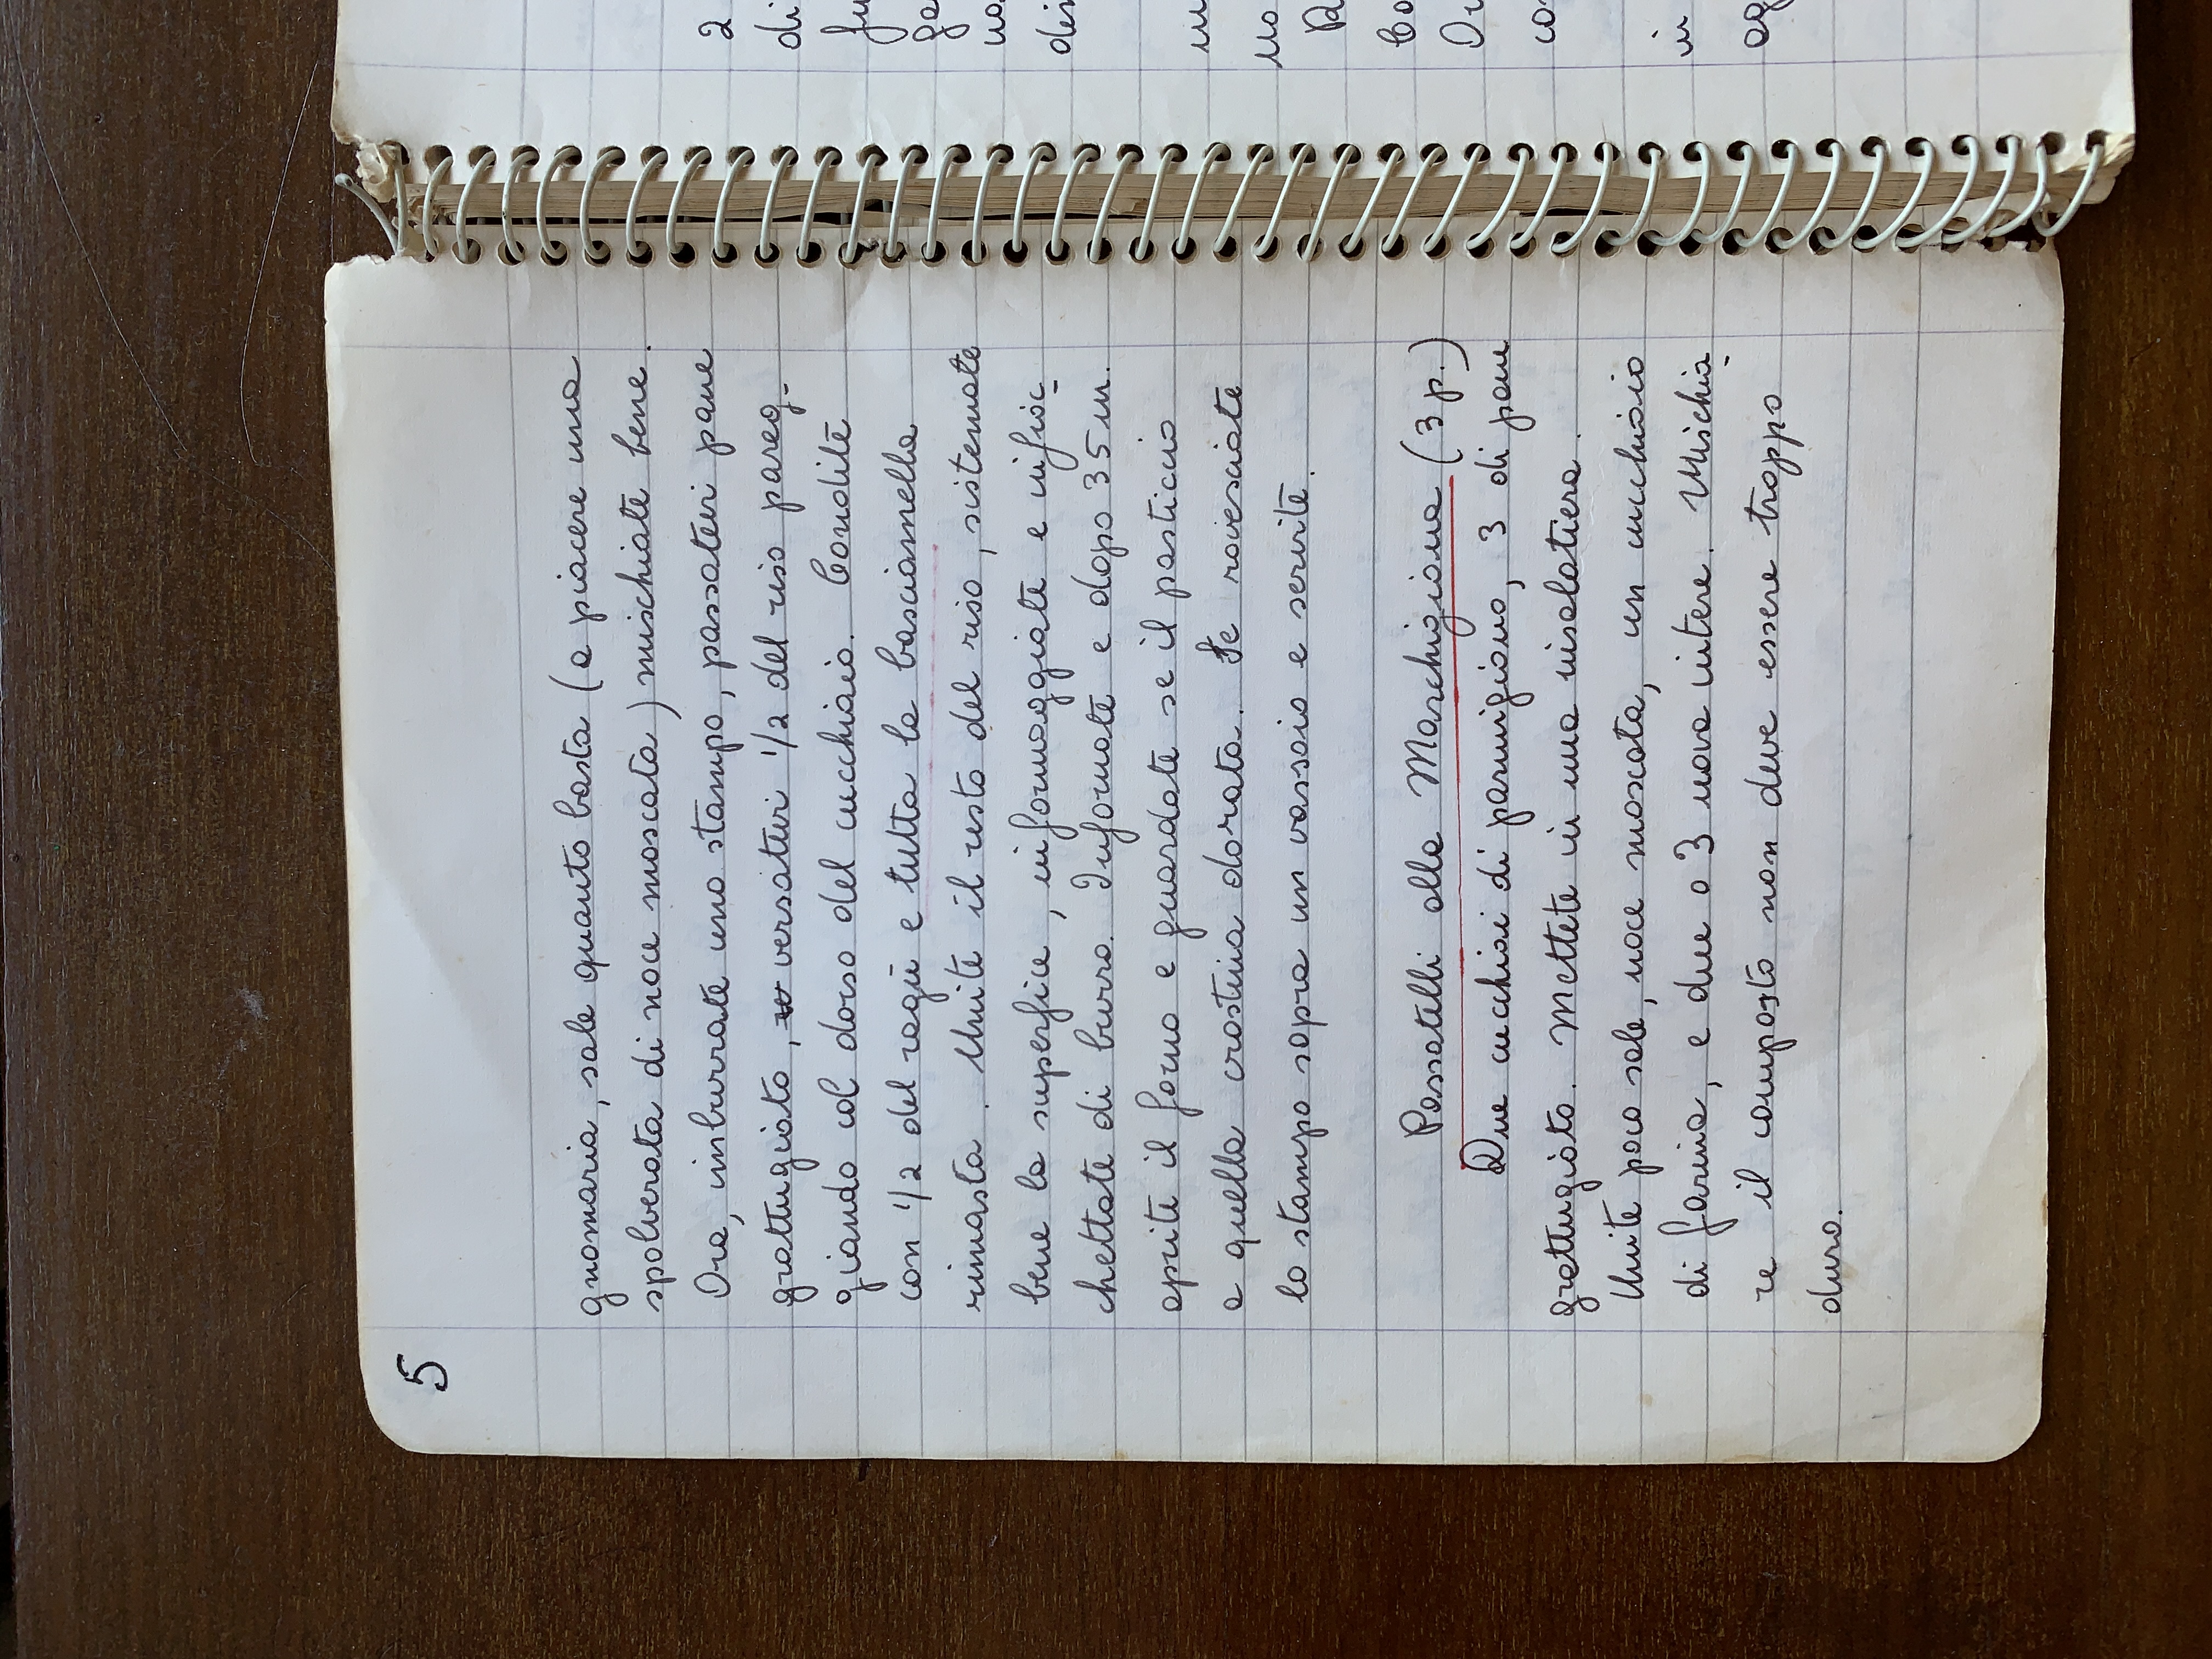 5
gnomaria, sale quanto basta (a piacere una
spolverata di noce moscata) mischiate bene.
Ora, imburrate uno stampo, passatevi pane
grattugiato, versatevi 1/2 del riso pareg-
giando col dorso del cucchiaio. Condite
con 1/2 del ragù e tutta la basciamella
rimasta. Unite il resto del riso, sistemate
bene la superfice, informaggiate e infioc-
chettate di burro. Infornate e dopo 35 m.
aprite il forno e guardate se il pasticcio
a quella crostina dorata. Se rovesciate
lo stampo sopra un vassoio e servite.
Passatelli alla Marchigiana (3 p.)
Due cucchiai di parmigiano, 3 di pane
grattugiato. Mettete in una insalatiera.
Unite poco sale, noce moscata, un cucchiaio
di farina, e due o 3 uova intere. Mischia-
re il composto non deve essere troppo
duro.
2
di
in